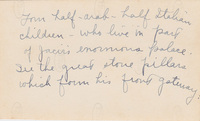 half-arab - half Italian
children - who live in part
of Jacir's enormous palace.
See the great stone pillars
which form his front gateway.